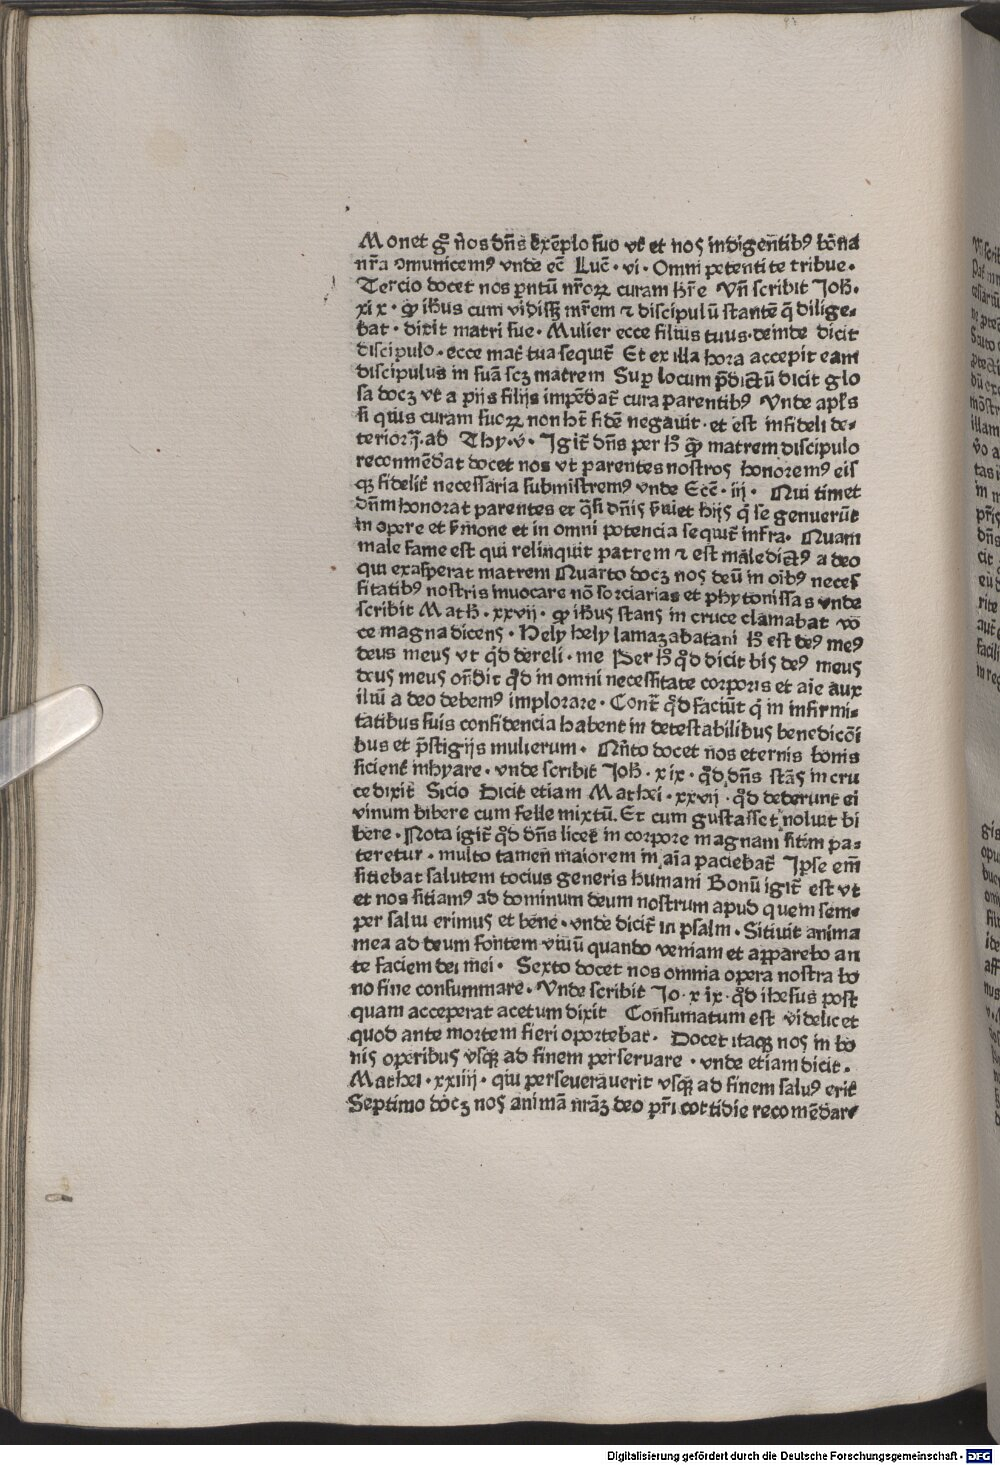 Monet gͦ nos dn̄s exēplo suo vt et nos indigentibꝰ bona
nr̄a ꝯmunicemꝰ vnde ec̄ Luc̄ · vi · Omni petenti te tribue ·
Tercio docet nos pn̄tū nr̄oꝝ curam hr̄e Vn̄ scribit Joh̄ ·
xix · ꝙ ihūs cum vidissꝫ mr̄em ⁊ discipulū stantē q̄ dilige⸗
bat · dixit matri sue · Mulier ecce filius tuus · deinde dicit
discipulo · ecce mat̄ tua sequit̄ Et ex illa hora accepit eam
discipulus in suā scꝫ matrem Suꝑ locum p̄dictū dicit glo
sa docꝫ vt a piis filijs impēdat̄ cura parentibꝰ Vnde apl̄s
si quis curam suoꝝ non ht̄ fidē negauit · et est infideli de⸗
terior ad Thy · v · Igit̄ dn̄s per hͦ ꝙ matrem discipulo
recommēdat docet nos vt parentes nostros honoremꝰ eis
qꝫ fidelit̄ necessaria submistremꝰ vnde Ecc̄ · iij · Qui timet
dn̄m honorat parentes et q̄si dn̄is s̄uiet hijs q̄ se genuerūt
in opere et s̄mone et in omni potencia sequit̄ infra · Quam
male fame est qui relinquit patrem ⁊ est maledictꝰ a deo
qui exasperat matrem Quarto docꝫ nos deū in oībꝰ neces
sitatibꝰ nostris inuocare nō sorciarias et phytonissas vnde
scribit Math̄ · xxvii · ꝙ ihūs stans in cruce clamabat vo
ce magna dicens · Hely hely lamazabatani hͦ est deꝰ meꝰ
deus meus vt qͥd dereli · me Per hͦ qͦd dicit bis deꝰ meus
deus meus on̄dit qͦd in omni necessitate corporis et aīe aux
iliū a deo debemꝰ implorare · Cont̄ qͦd faciūt q̄ in infirmi⸗
tatibus suis confidencia habent in detestabilibus benedicōi
bus et p̄stigijs mulierum · Qn̄to docet nos eternis bonis
sicient̄ inhyare · vnde scribit Joh̄ · xix · qͦd dn̄s stās in cru
ce dixit Sicio Dicit etiam Mathei · xxvij · qͦd dederunt ei
vinum bibere cum felle mixtū. Et cum gustasset noluit bi
bere · Nota igit̄ qͦd dn̄s licet in corpore magnam sitim pa⸗
teretur · multo tamen maiorem in aīa paciebat̄ Ipse em̄
sitiebat salutem tocius generis humani Bonū igit̄ est vt
et nos sitiamꝰ ad dominum deum nostrum apud quem sem⸗
per salui erimus et bene · vnde dicit̄ in psalm · Sitiuit anima
mea ad deum fontem viuū quando veniam et apparebo an
te faciem dei mei · Sexto docet nos omnia opera nostra bo
no fine consummare · Vnde scribit Jo · xix · qͦd ihesus post
quam acceperat acetum dixit Consumatum est videlicet
quod ante mortem fieri oportebat · Docet itaqꝫ nos in bo
nis operibus vsqꝫ ad finem perseruare · vnde etiam dicit ·
Mathei · xxiiij · qui perseuerauerit vsqꝫ ad finem saluꝰ erit
Septimo docꝫ nos animā nr̄aꝫ deo pr̄i cottidie recomēdare
Digitalisierung gefördert durch die Deutsche Forschungsgemeinschaft · DFG